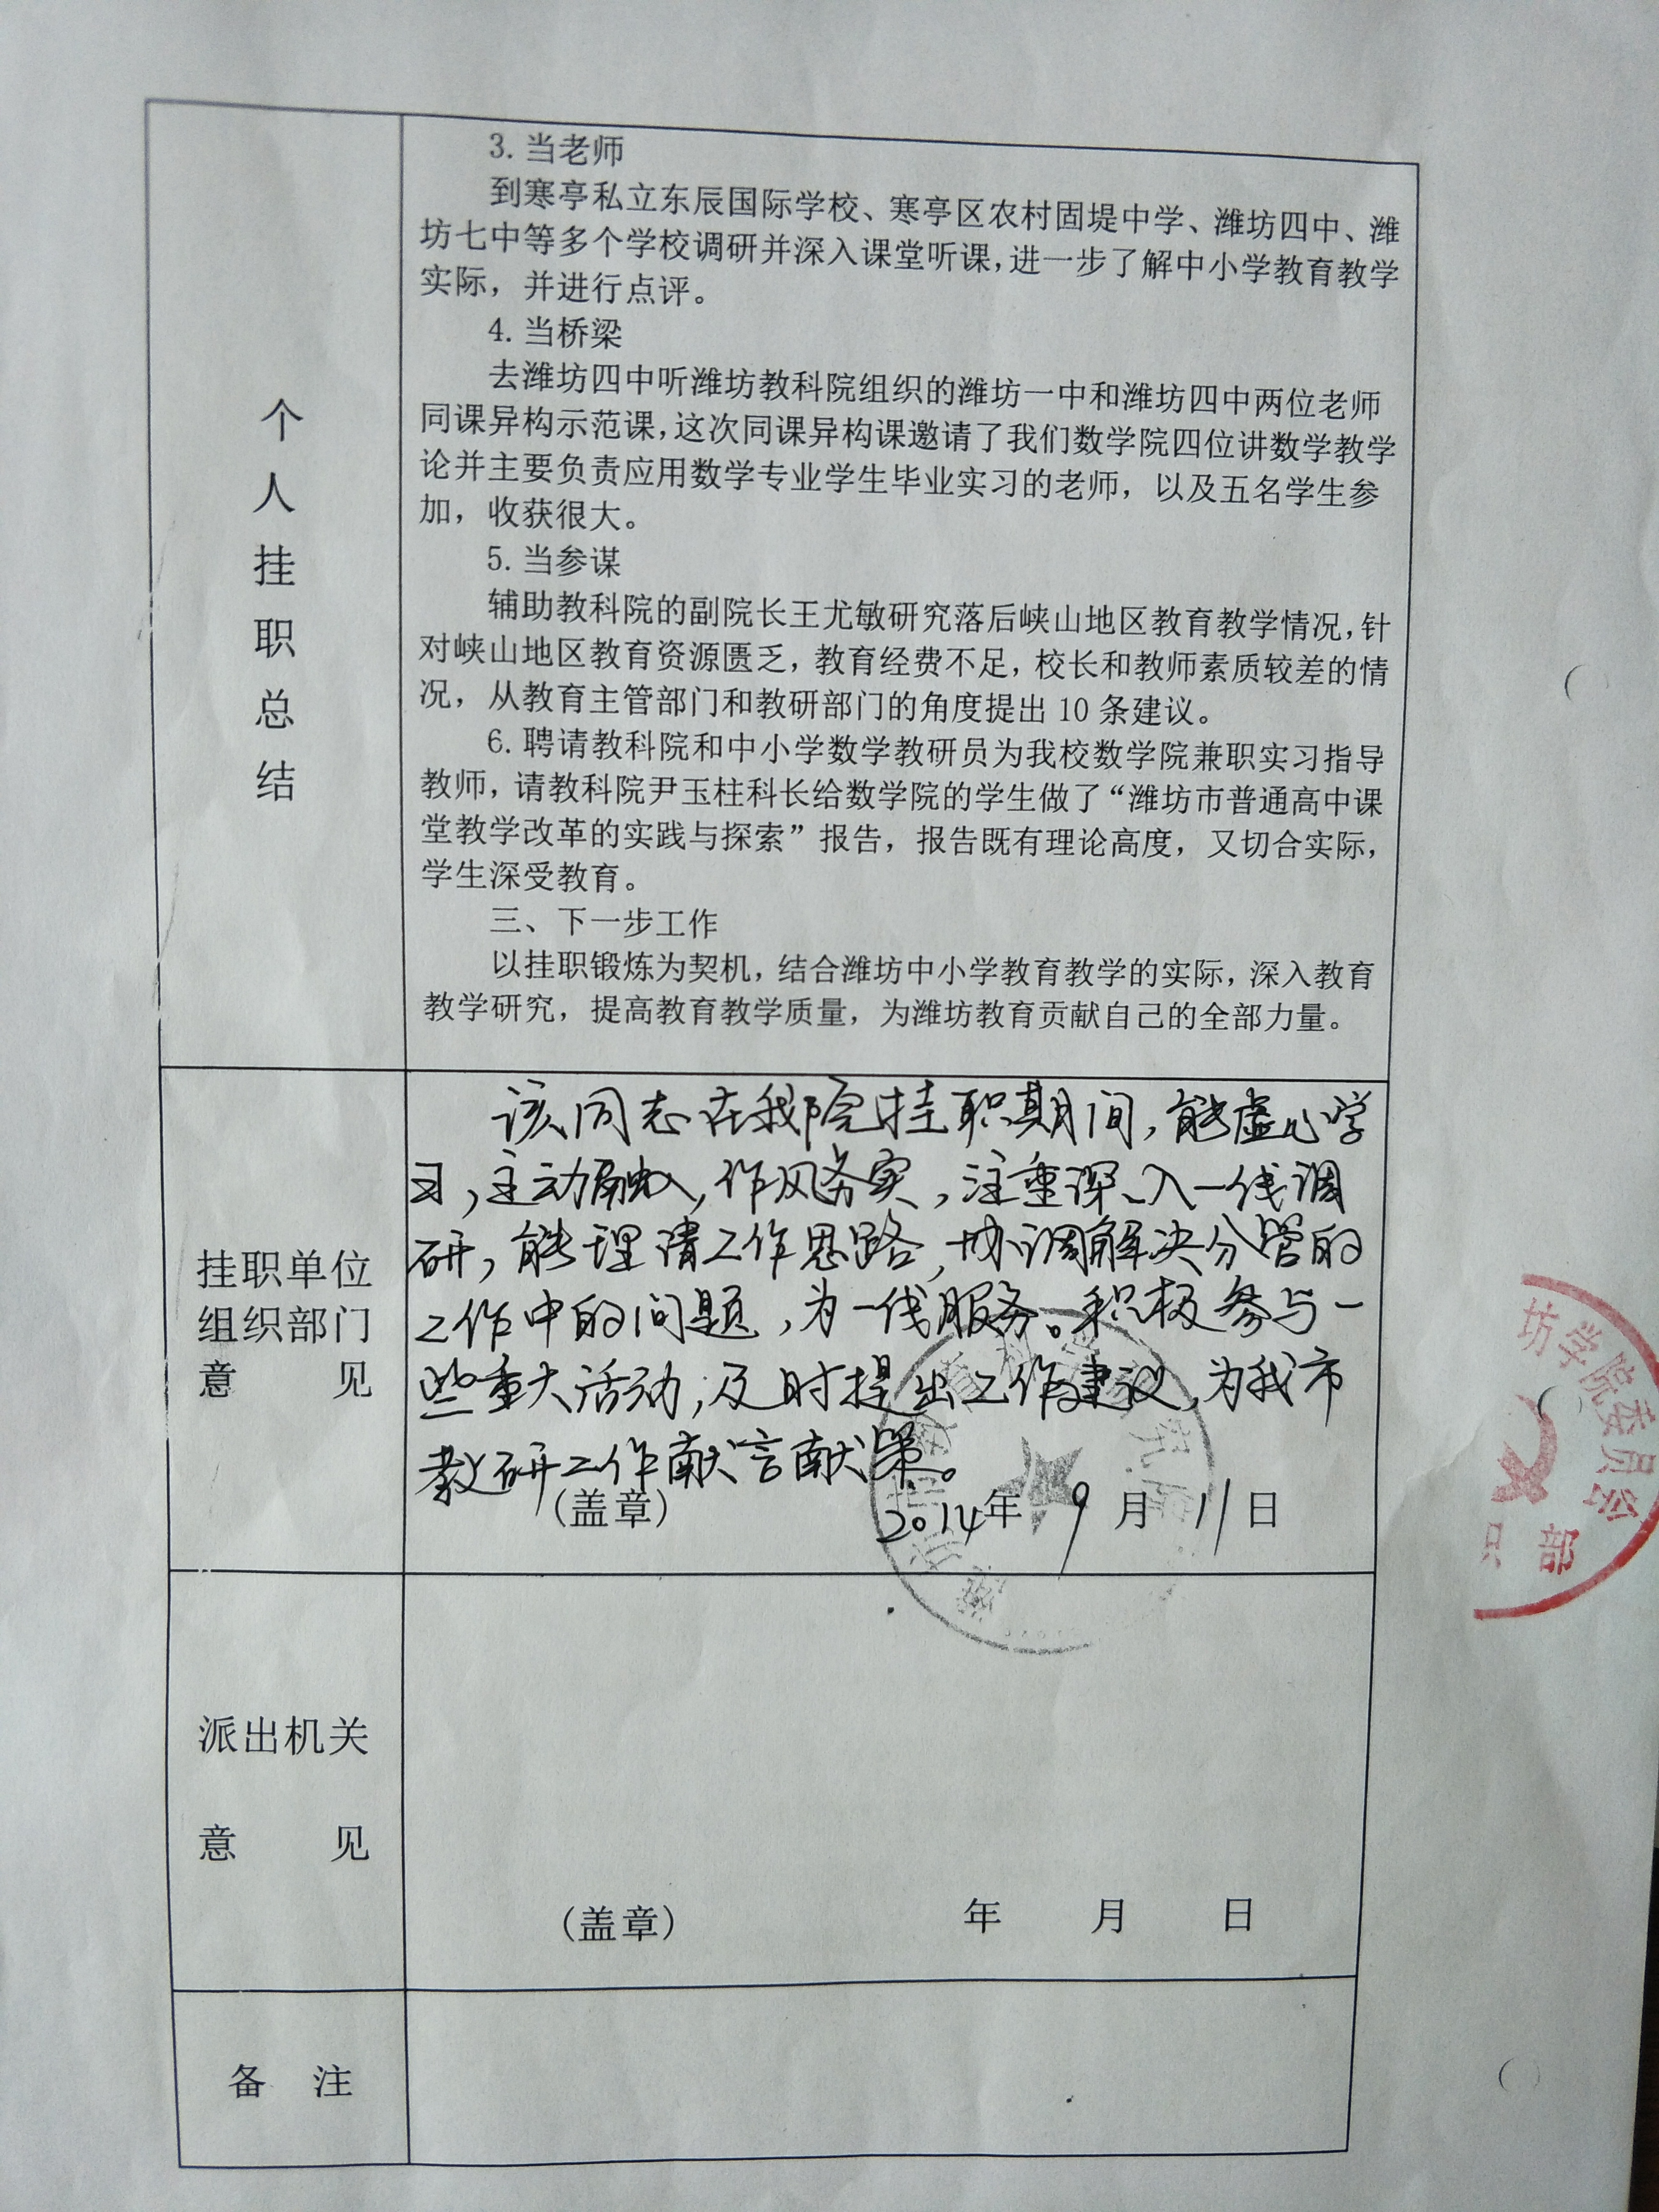 个人挂职总结
3. 当老师
到寒亭私立东辰国际学校、寒亭区农村固堤中学、潍坊四中、潍
坊七中等多个学校调研并深入课堂听课,进一步了解中小学教育教学
实际，并进行点评。
4. 当桥梁
去潍坊四中听潍坊教科院组织的潍坊一中和潍坊四中两位老师
同课异构示范课,这次同课异构课邀请了我们数学院四位讲数学教学
论并主要负责应用数学专业学生毕业实习的老师，以及五名学生参
加，收获很大。
5. 当参谋
辅助教科院的副院长王尤敏研究落后峡山地区教育教学情况,针
对峡山地区教育资源匮乏，教育经费不足，校长和教师素质较差的情
况，从教育主管部门和教研部门的角度提出 10 条建议。
6. 聘请教科院和中小学数学教研员为我校数学院兼职实习指导
教师，请教科院尹玉柱科长给数学院的学生做了“潍坊市普通高中课
堂教学改革的实践与探索”报告，报告既有理论高度，又切合实际，
学生深受教育。
三、下一步工作
以挂职锻炼为契机，结合潍坊中小学教育教学的实际，深入教育
教学研究，提高教育教学质量，为潍坊教育贡献自己的全部力量。
挂职单位
组织部门
意 见
该同志在我院挂职期间,能虚心学
习,主动融入,作风务实,注重深入一线调
研,能理清工作思路,协调解决分管的
工作中的问题,为一线服务。积极参与一
些重大活动,及时提出工作建议,为我市
教研工作献言献策。
(盖章) 2014年 9 月 11 日
坊学院委员会
部
派出机关
意 见
(盖章) 年 月 日
备 注